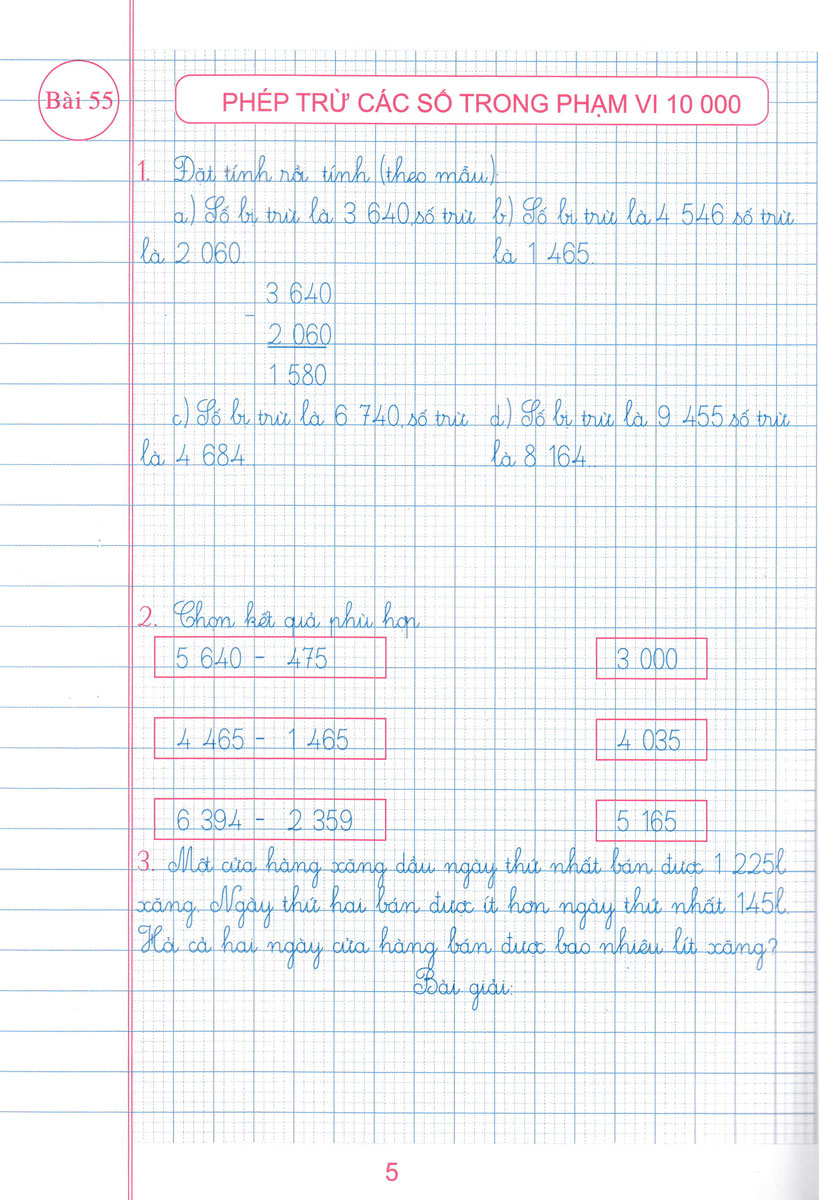 Bài 55
PHÉP TRỪ CÁC SỐ TRONG PHẠM VI 10 000
1. Đặt tính rồi tính (theo mẫu):
a) Số bị trừ là 3 640, số trừ b) Số bị trừ là 4 546 số trừ
là 2 060. là 1 465.
3 640
-
2 060
1 580
c) Số bị trừ là 6 740, số trừ d) Số bị trừ là 9 455 số trừ
là 4 684. là 8 164.
2. Chọn kết quả phù hợp
5 640 - 475 3 000
4 465 - 1 465 4 035
6 394 - 2 359 5 165
3. Một cửa hàng xăng dầu ngày thứ nhất bán được 1 225l
xăng. Ngày thứ hai bán được ít hơn ngày thứ nhất 145l.
Hỏi cả hai ngày cửa hàng bán được bao nhiêu lít xăng?
Bài giải:
5